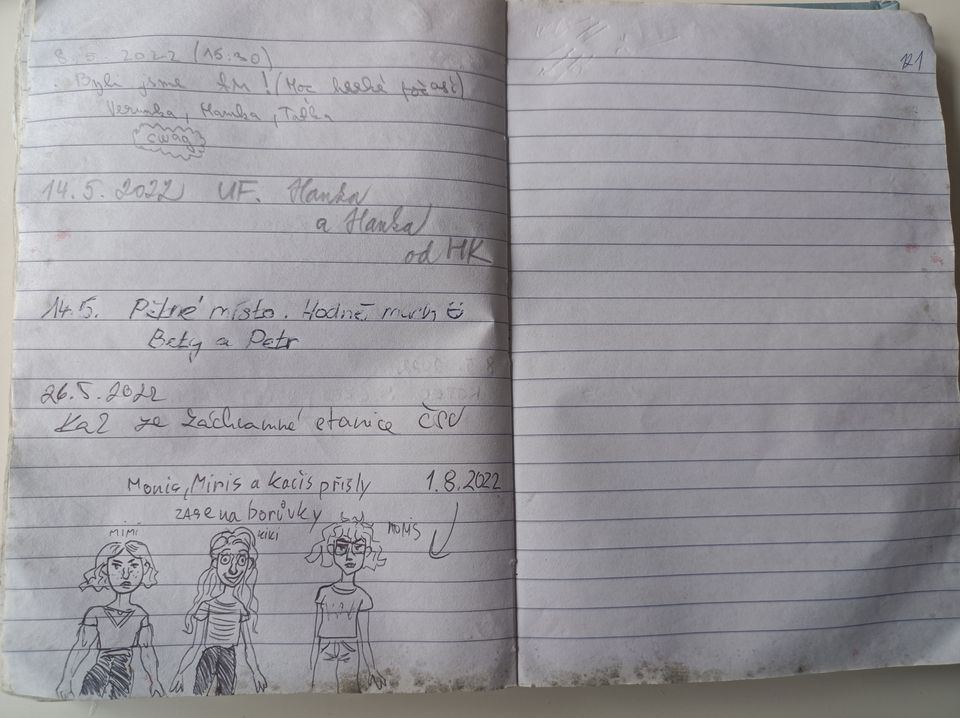 8.5. 2022 (15:30)
Byli jsme ! (Moc hezké počasí)
Verunka, Hanka,
swag
14.5. 2022 UF. Hanka
a Hanka
od HK
14.5. Pěkné místo. Hodně much
Bety a Petr
26.5.2022
Kaž ze záchranné stanice ČSV
Monis, Miris a Kačis přišly 1.8.2022
zase na borůvky
MIMI
KIKI
MONIS
121